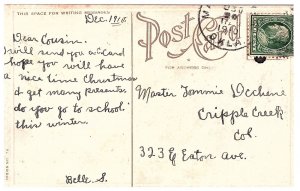 THIS SPACE FOR WRITING MESSAGES
Dec. 1910
Dear Cousin.
I will send you a card
hope you will have
a nice time Christmas
& get many presents
do you go to school
this winter.
Belle S.
Post Card
FOR ADDRESS ONLY
Master Tommie Dechene
Cripple Creek
Col.
323 E Eaton ave.